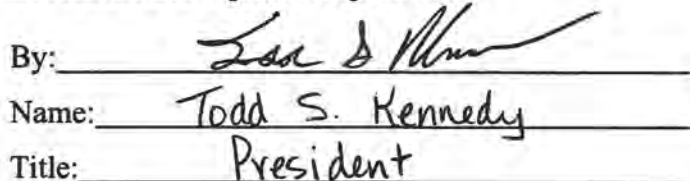 By:
Name: Todd S. Kennedy
Title: President